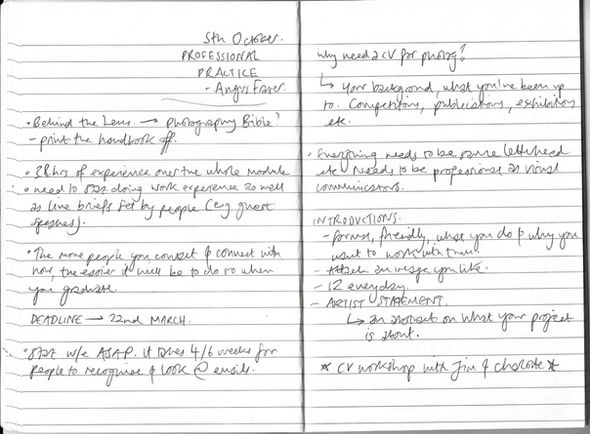 5th October.
PROFESSIONAL
PRACTICE
- Angus Fraser
• Behind the Lens. → photography Bible?
- print the handbook off.
• 38hrs of experience over the whole module
• need to start doing work experience as well
as live briefs set by people (eg guest
speakers).
• The more people you contact & connect with
now, the easier it will be to do so when
you graduate.
DEADLINE → 22nd MARCH.
• start w/e ASAP. it takes 4/6 weeks for
people to recognise & look @ emails.
Why need a CV for photog?
↳ Your background, what you've been up
to. Competitions, publications, exhibitions
etc.
• Everything needs to be same letterhead
etc. Needs to be professional as visual
communicators.
INTRODUCTIONS.
- formal, friendly, what you do & why you
want to work with them.
- Attach an image you like.
- 12 everyday.
- ARTIST STATEMENT.
↳ an abstract on what your project
is about.
* CV workshop with Jim & Charlotte *